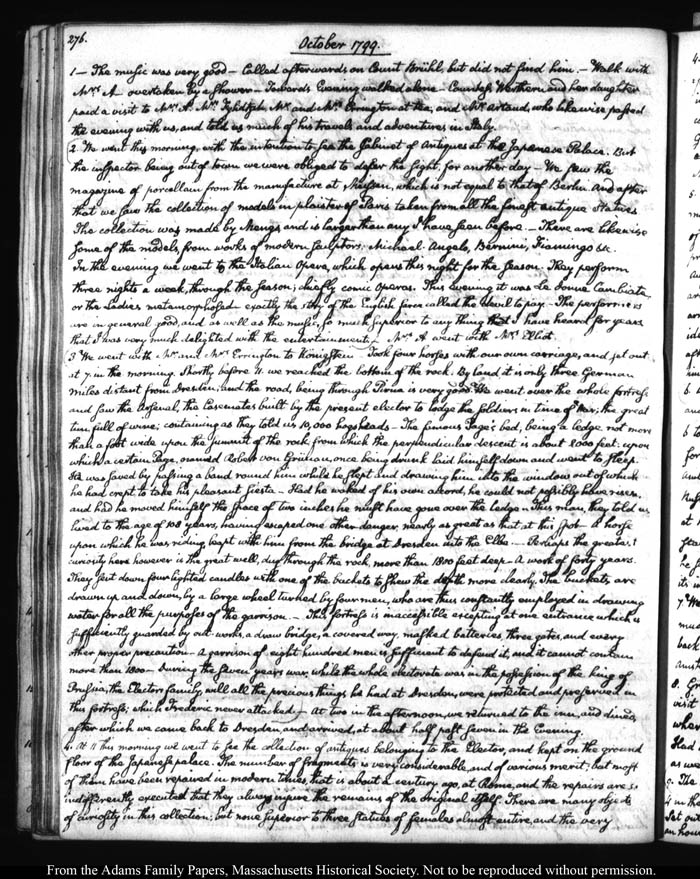 276.
October 1799.
1 — The music was very good — Called afterwards on Count Brühl, but did not find him. — Walk with
Mrs. A overtaken by a shower — Towards Evening walked alone — Countess Werthern and her daughter
paid a visit to Mrs. A. Mr. Mr. and Mrs. Errington at tea, and Mr. Artaud, who likewise passed
the evening with us, and told us much of his travels and adventures in Italy.
2. We went this morning, with the intention to see the Cabinet of Antiques at the Japanese Palace. But
the inspector being out of town we were obliged to defer the sight, for another day — We saw the
magazine of porcellain from the manufacture at Meissen, which is not equal to that of Berlin. And after
that we saw the collection of models in plaister of Paris taken from all the finest antique Statues
The collection was made by Mengs, and is larger than any I have seen before — There are likewise
some of the models, from works of modern sculptors. Michael Angelo, Bernini, Fiamingo &c.
In the evening we went to the Italian Opera, which opens this night for the season. They perform
three nights a week, through the season; chiefly comic Operas. This evening it was Le Donne Cambiate,
or the Ladies metamorphosed exactly the story of the English farce called the Devil to pay — The performers
are in general good, and as well as the music, so much superior to any thing that I have heard for years
that I was very much delighted with the entertainment. — Mrs. A went with Mr. Elliot.
3 We went with Mr. and Mrs. Errington to Königstein — Took four horses with our own carriage, and set out
at 7. in the morning. Shortly before 11. we reached the bottom of the rock. By land it is only three German
miles distant from Dresden, and the road, being through Pirna is very good. We went over the whole fortress
and saw the Arsenal, the Casemates built by the present elector to lodge the soldiers in time of War; the great
tun full of wine; containing as they told us 10,000 hogsheads — The famous Page's bed, being a ledge not more
than a foot wide upon the summit of the rock from which the perpendicular descent is about 1,000 feet; upon
which a certain Page, named Robert von Grünau, once being drunk laid himself down and went to sleep.
He was saved by passing a band round him while he slept and drawing him into the window out of which
he had crept to take his pleasant siesta — Had he waked of his own accord, he could not possibly have risen
and had he moved himself the space of two inches he must have gone over the ledge — This man, they told us
lived to the age of 108 years, having escaped one other danger nearly as great as that at this spot — A horse
upon which he was riding leapt with him from the bridge at Dresden into the Elbe — Perhaps the greatest
curiosity here however is the great well, dug through the rock, more than 1800 feet deep — A work of forty years.
They sent down four lighted candles with one of the buckets to shew the depth more clearly. The buckets are
drawn up and down, by a large wheel turned by four men, who are thus constantly employed in drawing
water for all the purposes of the garrison. — This fortress is inaccessible excepting at one entrance which is
sufficiently guarded by out-works, a draw bridge, a covered way, masked batteries, three gates, and every
other proper precaution — A garrison of eight hundred men is sufficient to defend it, and it cannot contain
more than 1800 — During the seven years war, while the whole electorate was in the possession of the king of
Prussia, the Elector's family, with all the precious things he had at Dresden, were protected and preserved in
this fortress; which Frederic never attacked — At two in the afternoon, we returned to the inn, and dined,
after which we came back to Dresden, and arrived, at about half past seven in the Evening.
4. At 11 this morning we went to see the collection of antiques belonging to the Elector, and kept on the ground
floor of the Japanese palace. The number of fragments is very considerable, and of various merit; but most
of them have been repaired in modern times, that is about a century ago, at Rome, and the repairs are so
indifferently executed that they always injure the remains of the original itself. There are many objects
of curiosity in this collection; but none superior to three statues of females almost entire, and the very
From the Adams Family Papers, Massachusetts Historical Society. Not to be reproduced without permission.